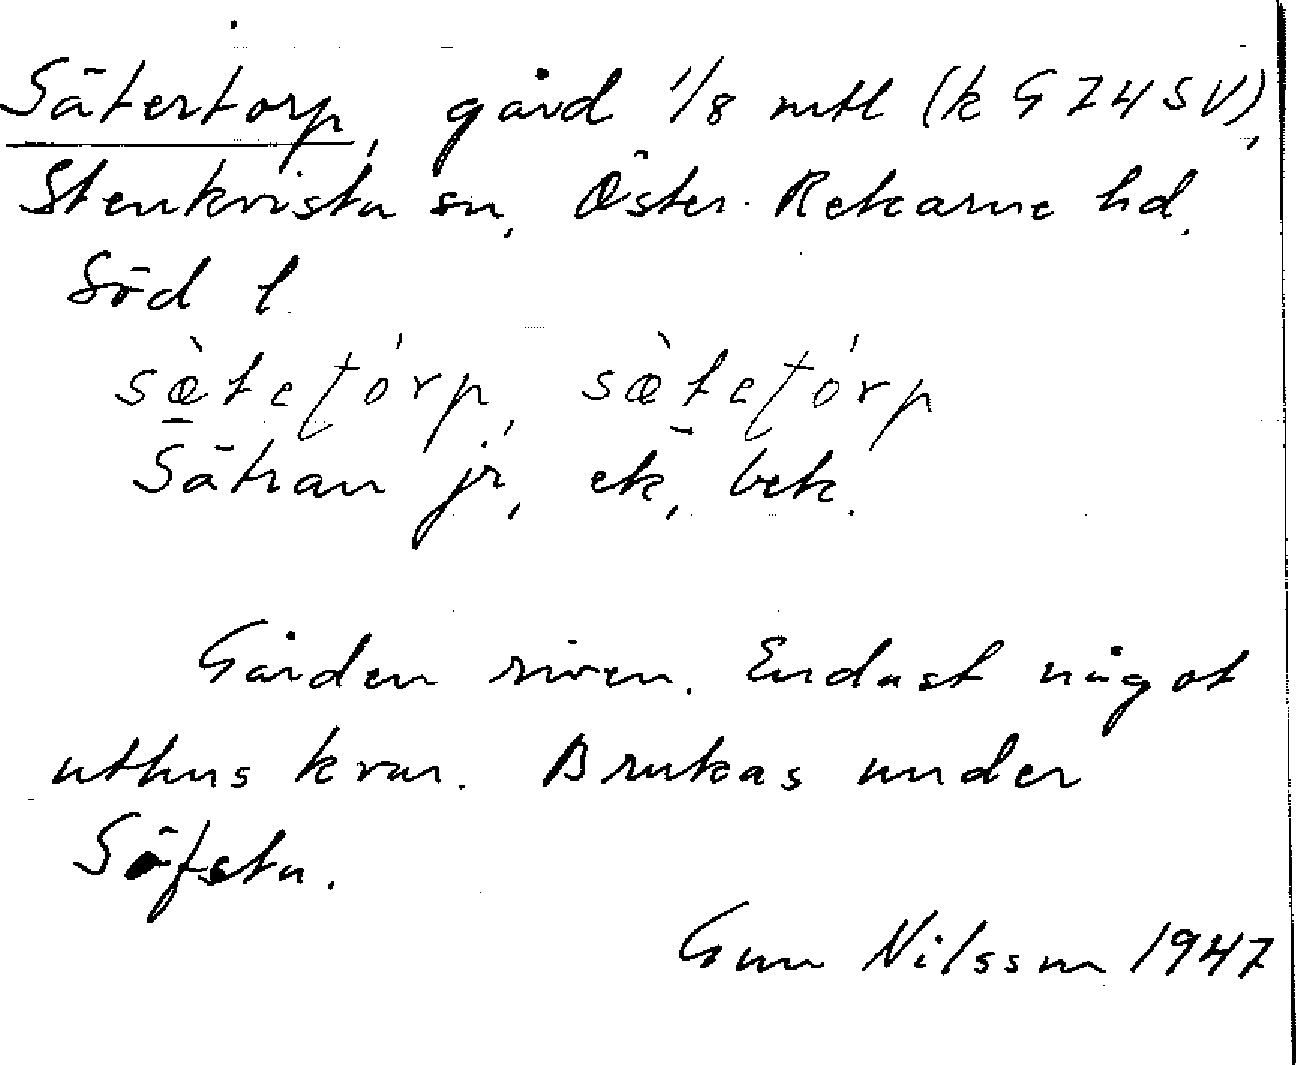 Sätertorp, gård 1/8 mtl (k G 74 SV),
Stenkvista sn, Öster-Rekarne hd.
Söd l.
sæ̀teʈórp, sæ̀teʈórp
Sätran jr, ek, bek.
Gården riven. Endast något
uthus kvar. Brukas under
Söfsta.
Gun Nilsson 1947